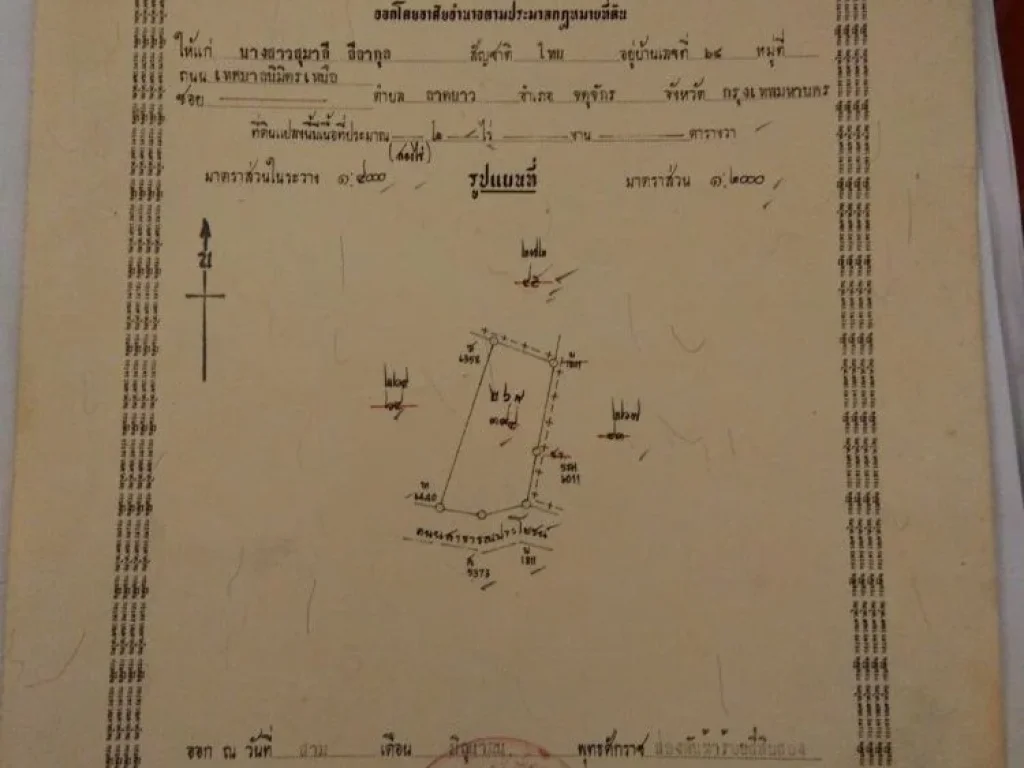 ออกโดยอาศัยอำนาจตามประมวลกฎหมายที่ดิน
ให้แก่ นางสาวสุมาลี ลีลากุล สัญชาติ ไทย อยู่บ้านเลขที่ ๖๙ หมู่ที่
ถนน เทศบาลนิมิตรเหนือ
ซอย ตำบล ลาดยาว อำเภอ จตุจักร จังหวัด กรุงเทพมหานคร
ที่ดินแปลงนี้มีเนื้อที่ประมาณ ๒ ไร่ งาน ตารางวา
(สองไร่)
มาตราส่วนในระวาง ๑:๔๐๐๐ รูปแผนที่ มาตราส่วน ๑:๒๐๐๐
น
๒๗๒
ห
๒๖๗
ถนนสาธารณประโยชน์
5373
ออก ณ วันที่ สาม เดือน มิถุนายน พุทธศักราช สองพันห้าร้อยสี่สิบสอง